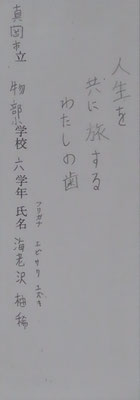 人生を
共に旅する
わたしの歯
真岡市立 物部小学校 六学年 氏名 海老沢 柚稀
フリガナ エビサワ ユズキ